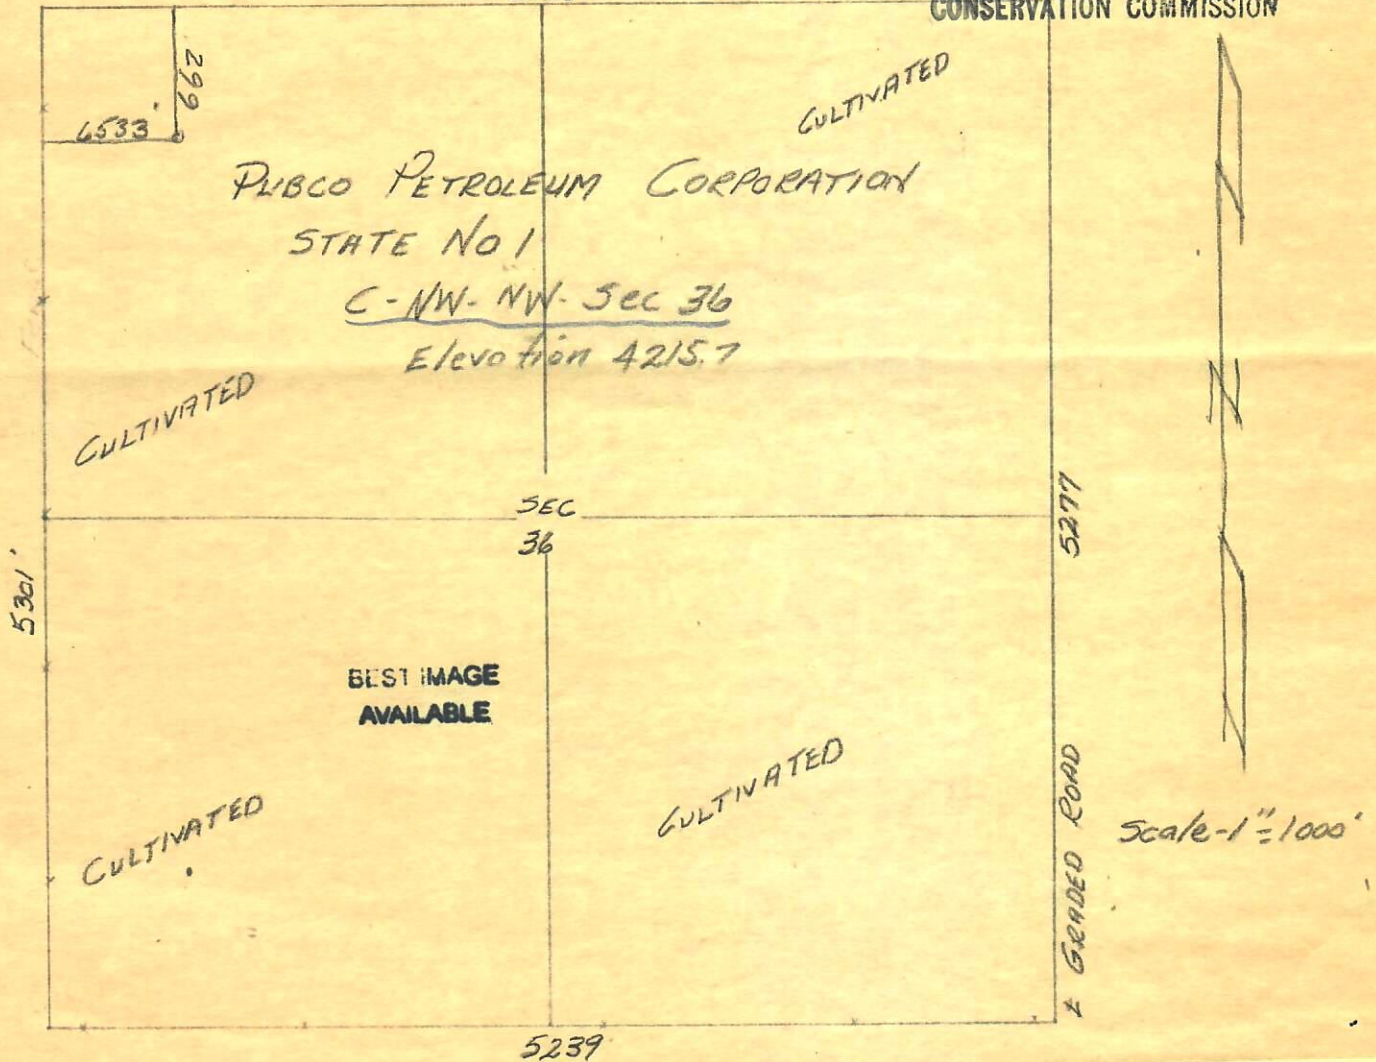 CONSERVATION COMMISSION
662
6533'
CULTIVATED
PUBCO PETROLEUM CORPORATION
STATE No 1
C-NW-NW-Sec 36
Elevation 4215.7
N
CULTIVATED
SEC
36
5277
5301'
BEST IMAGE
AVAILABLE
CULTIVATED
CULTIVATED
GRADED ROAD
Scale-1"=1000'
5239